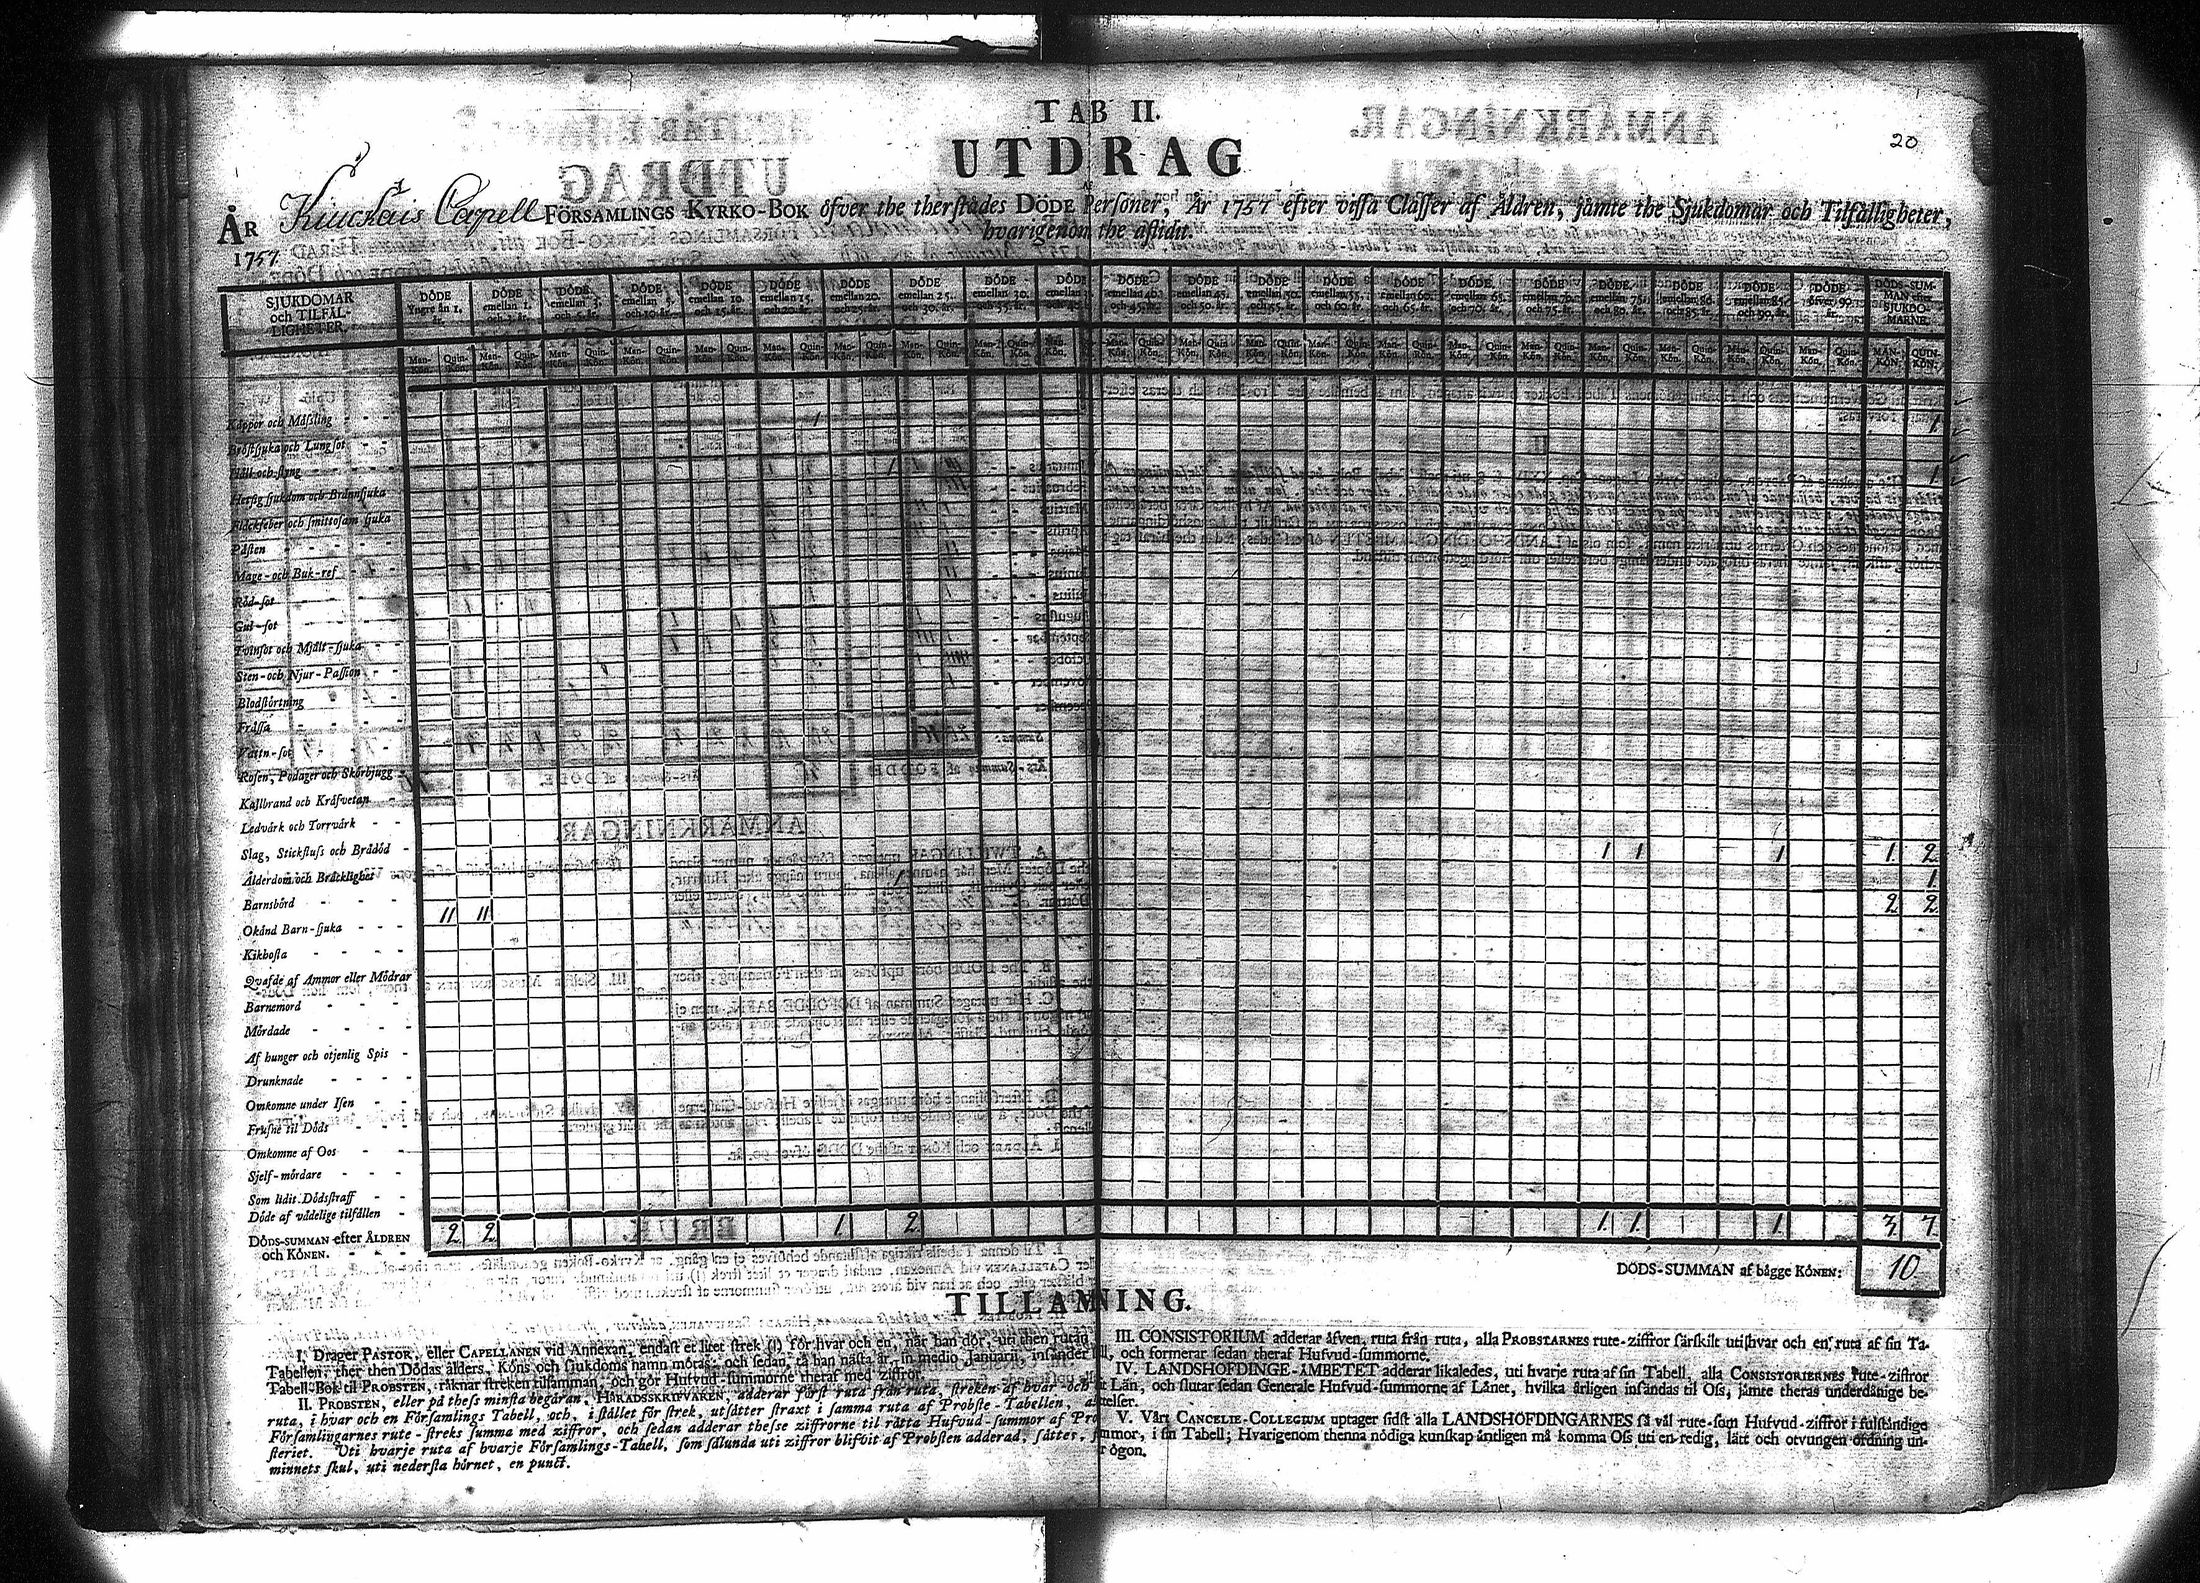 TAB II.
UTDRAG
20
ÅR Capell FÖRSAMLINGS KYRKO-BOK öfver the therstådes DÖDE Personer, År 1757 efter vissa Classer af Åldren, jämte the Sjukdomar och Tilfälligheter,
1757. hvarigenom the aflidit.
SJUKDOMAR och TILFÄL-LIGHETER.
DÖDE Yngre än 1. år.
DÖDE emellan 1. och 3. år.
DÖDE emellan 3. och 5. år.
DÖDE emellan 5. och 10. år.
DÖDE emellan 10. och 15. år.
DÖDE emellan 15. och 20. år.
DÖDE emellan 20. och 25. år.
DÖDE emellan 25. och 30. år.
DÖDE emellan 30. och 35. år.
DÖDE
DÖDE emellan 40. och 45. år.
DÖDE emellan 45. och 50. år.
DÖDE emellan 50. och 55. år.
DÖDE emellan 55. och 60. år.
DÖDE emellan 60. och 65. år.
DÖDE emellan 65. och 70. år.
DÖDE emellan 70. och 75. år.
DÖDE emellan 75. och 80. år.
DÖDE emellan 80. och 85. år.
DÖDE emellan 85. och 90. år.
DÖDE öfver 90. år.
DÖDS-SUM-MAN efter SJUKDO-MARNE.
Man-Kön. Quin-Kön. Man-Kön. Quin-Kön. Man-Kön. Quin-Kön. Man-Kön. Quin-Kön. Man-Kön. Quin-Kön. Man-Kön. Quin-Kön. Man-Kön. Quin-Kön. Man-Kön. Quin-Kön. Man-Kön. Quin-Kön. Man-Kön. Man-Kön. Quin-Kön. Man-Kön. Quin-Kön. Man-Kön. Quin-Kön. Man-Kön. Quin-Kön. Man-Kön. Quin-Kön. Man-Kön. Quin-Kön. Man-Kön. Quin-Kön. Man-Kön. Quin-Kön. Man-Kön. Quin-Kön. Man-Kön. Quin-Kön. Man-Kön. Quin-Kön. MAN-KÖN. QUIN-KÖN.
Koppor och Mäßling - - 1 1.
Bröstsjuka och Lungsot - -
Håll och styng - - 1 1.
Hetsig sjukdom och Brännsjuka
Fläckfeber och smittosam sjuka
Påsten - - - -
Mage- och Buk-ref - -
Röd-sot - - - -
Gul-sot - - - -
Tvinsot och Mjält-sjuka -
Sten- och Njur-Passion - -
Blodstörtning - -
Fråssa - - - -
Vattn-sot - - -
Rosen, Podager och Skörbjugg -
Kallbrand och Kräfvetan -
Ledvärk och Torrvärk - -
Slag, Stickfluss och Brådöd -
Ålderdom och Bräcklighet 1 1 1 1. 2.
Barnsbörd - - - 1 1.
Okänd Barn-sjuka - - - 11 11 2. 2.
Kikhosta - - - -
Qvafde af Ammor eller Mödrar
Barnemord - - - -
Mördade - - - -
Af hunger och otjenlig Spis -
Drunknade - - - -
Omkomne under Isen - -
Frusne til Döds - - -
Omkomne af Oos - -
Sjelf-mördare - - -
Som lidit Dödsstraff - -
Döde af vådelige tilfällen -
DÖDS-SUMMAN efter ÅLDREN och KÖNEN. - - - 2 2 1. 2. 1. 1. 1. 3. 7.
DÖDS-SUMMAN af bägge KÖNEN: 10
TILLÄMNING.
I. Drager PASTOR, eller CAPELLANEN vid Annexan, endast et litet strek (|) för hvar och en, när han dör, uti then rutan
Tabellen, ther then Dödas ålders, Köns och sjukdoms namn mötas; och sedan, tå han nästa år, in medio Januarii, insänder
Tabell-Bok til PROBSTEN, räknar streken tilsamman, och gör Hufvud-summorne theraf med ziffror.
II. PROBSTEN, eller på thess minsta begäran, HÄRADSSKRIFVAREN, adderar först ruta från ruta, streken af hvar och
ruta, i hvar och en Församlings Tabell, och, i stället för strek, utsätter straxt i samma ruta af Probste-Tabellen,
Församlingarnes rute-streks summa med ziffror, och sedan adderar thesse ziffrorne til rätta Hufvud-summor af
steriet. Uti hvarje ruta af hvarje Församlings-Tabell, som sålunda uti ziffror blifvit af Probsten adderad, sättes,
minnets skul, uti nedersta hörnet, en punct.
III. CONSISTORIUM adderar äfven, ruta från ruta, alla PROBSTARNES rute-ziffror särskilt uti hvar och en ruta af sin Ta-
och formerar sedan theraf Hufvud-summorne.
IV. LANDSHÖFDINGE-ÄMBETET adderar likaledes, uti hvarje ruta af sin Tabell, alla CONSISTORIERNES rute-ziffror
Län, och slutar sedan Generale Hufvud-summorne af Länet, hvilka årligen insändas til Oss, jämte theras underdånige be-
rättelser.
V. Vårt CANCELIE-COLLEGIUM uptager sidst alla LANDSHÖFDINGARNES så väl rute- som Hufvud-ziffror i fulständige
summor, i sin Tabell; Hvarigenom thenna nödiga kunskap äntligen må komma Oss uti en redig, lätt och otvungen ordning un-
ögon.